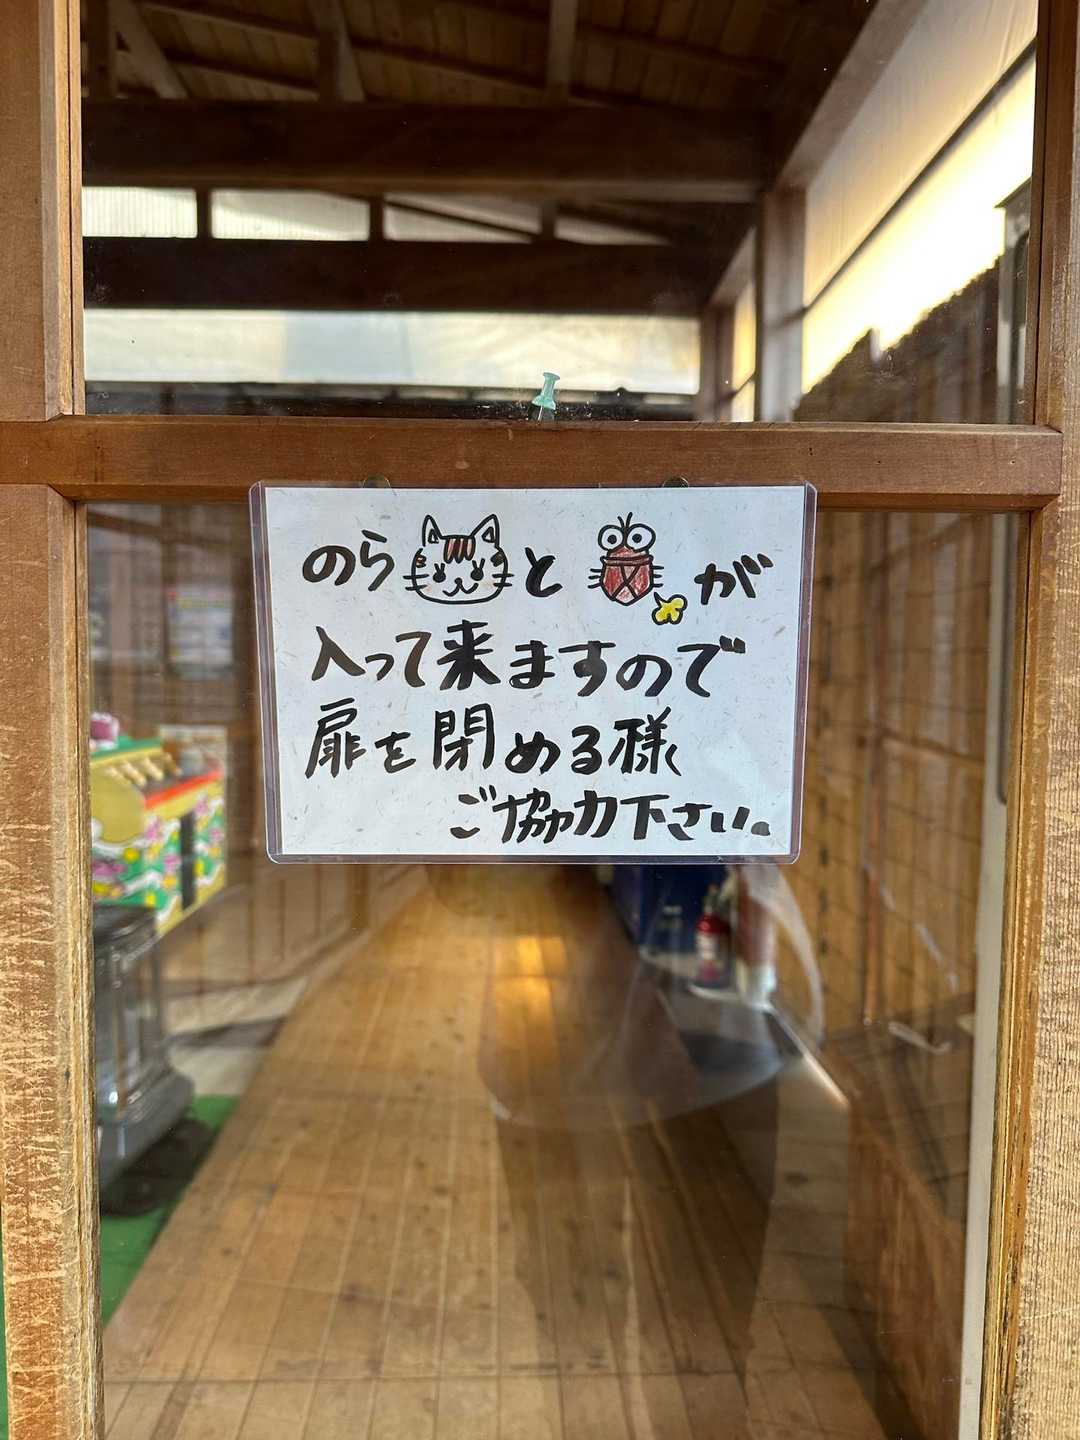 のら と が
入って来ますので
扉を閉める様
ご協力下さい。